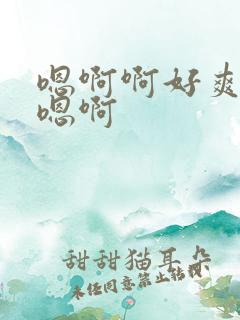 嗯啊啊好爽
嗯啊
甜甜猫耳朵
未经同意禁止转载